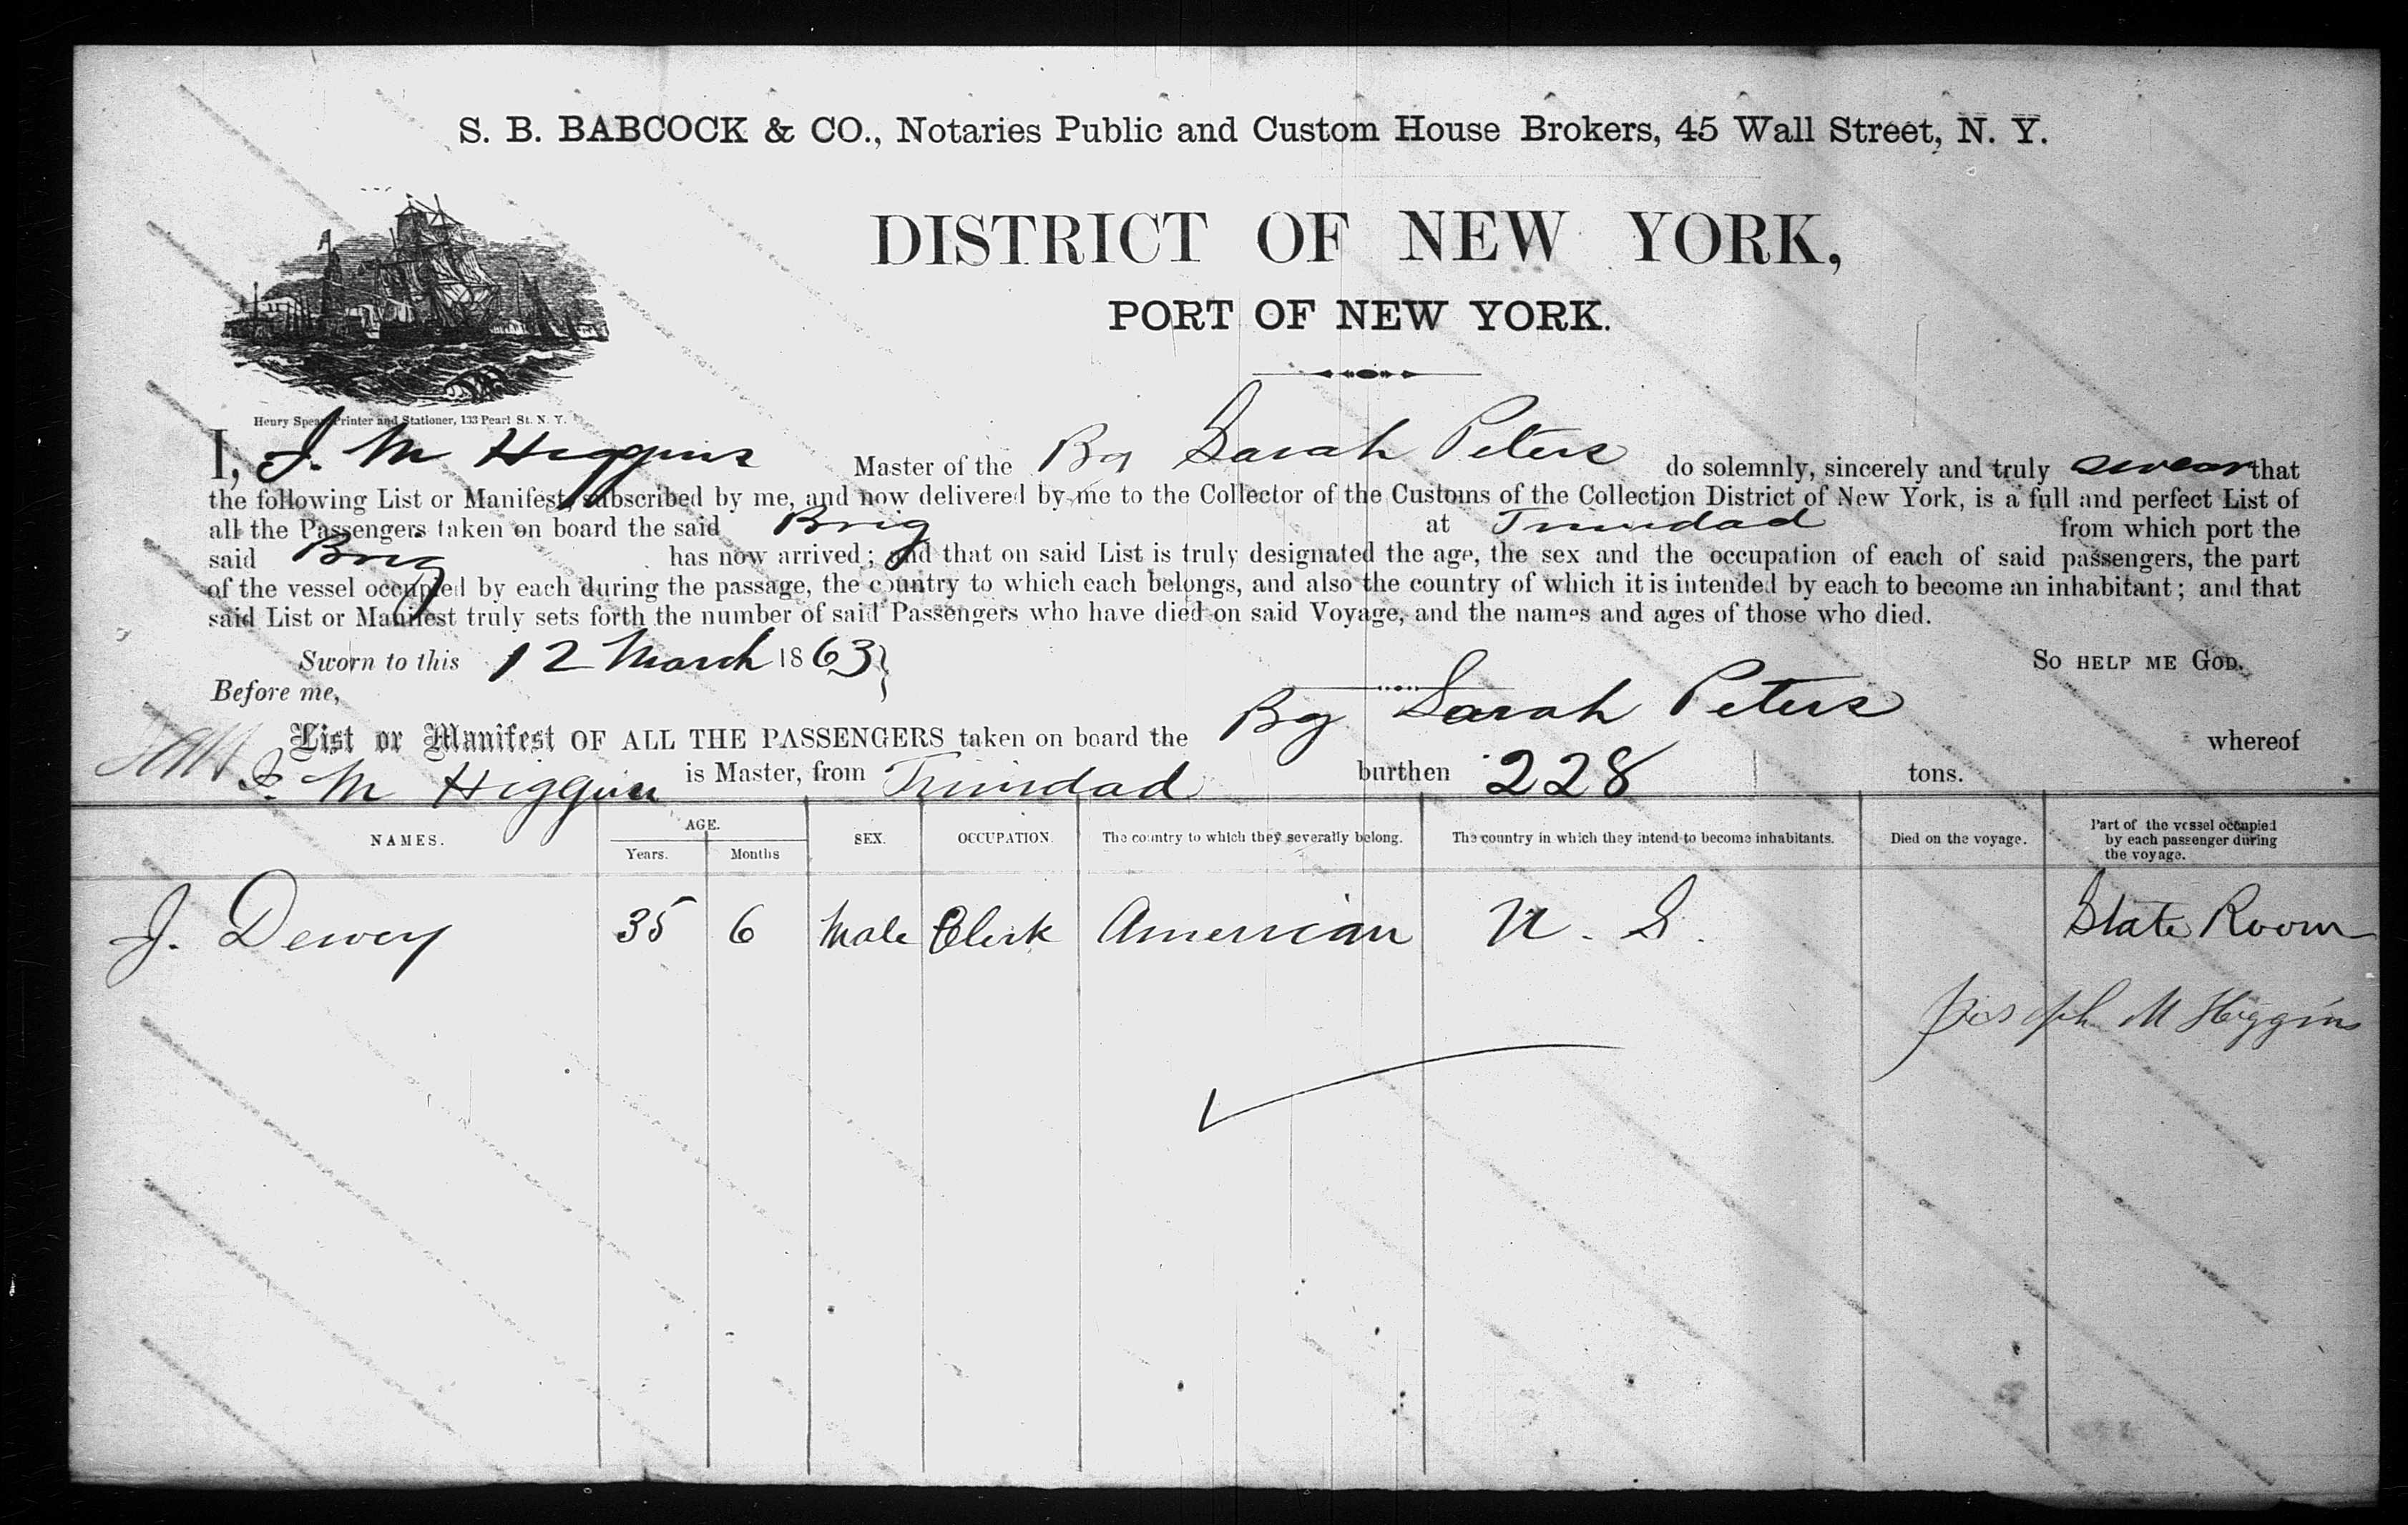 S. B. BABCOCK & CO., Notaries Public and Custom House Brokers, 45 Wall Street, N. Y.
DISTRICT OF NEW YORK,
PORT OF NEW YORK.
Henry Spear, Printer and Stationer, 133 Pearl St. N. Y.
I, J. M Higgins Master of the Bg Sarah Peters do solemnly, sincerely and truly swear that
the following List or Manifest, subscribed by me, and now delivered by me to the Collector of the Customs of the Collection District of New York, is a full and perfect List of
all the Passengers taken on board the said Brig at Trinidad from which port the
said Brig has now arrived; and that on said List is truly designated the age, the sex and the occupation of each of said passengers, the part
of the vessel occupied by each during the passage, the country to which each belongs, and also the country of which it is intended by each to become an inhabitant; and that
said List or Manifest truly sets forth the number of said Passengers who have died on said Voyage, and the names and ages of those who died.
Sworn to this 12 March 1863 SO HELP ME GOD.
Before me,
List or Manifest OF ALL THE PASSENGERS taken on board the Bg Sarah Peters whereof
J. M Higgins is Master, from Trinidad burthen 228 tons.
NAMES. AGE. Years. Months SEX. OCCUPATION. The country to which they severally belong. The country in which they intend to become inhabitants. Died on the voyage. Part of the vessel occupied by each passenger during the voyage.
J. Dewey 35 6 Male Clerk American U. S. State Room
Joseph M Higgins